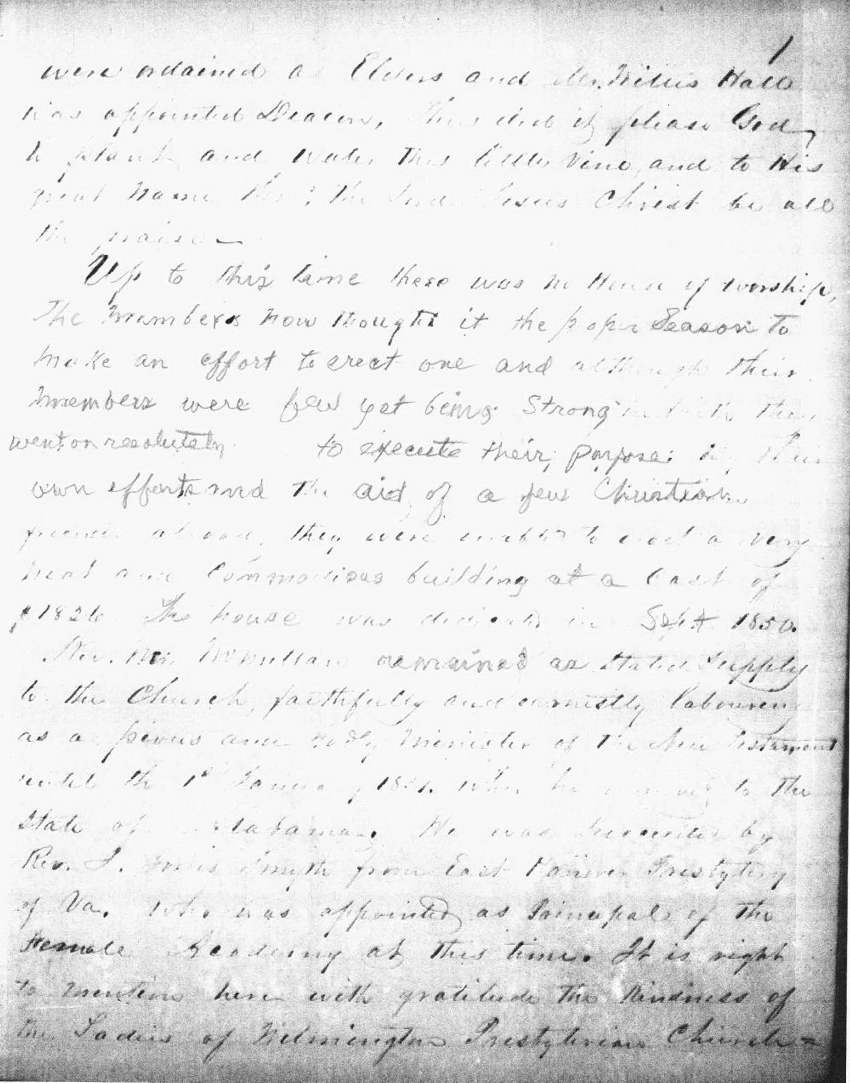 1
were ordained as Elders and Mr. Willis Hall
was appointed Deacon, Thus did it please God
to plant and water this little vine, and to His
great Name the Lord Jesus Christ be all
the praise
Up to this time there was no House of worship,
The members now thought it the proper Season to
make an effort to erect one and although their
members were few yet being Strong in faith they
went on resolutely to execute their purpose. By their
own efforts and the aid of a few Christian
friends abroad, they were enabled to erect a very
neat and Commodious building at a Cost of
$1826 The house was dedicated in Sept. 1850.
Rev. Mr. McMullan remained as Stated Supply
to the Church, faithfully and earnestly labouring
as a pious and Godly Minister of the New Testament
until the 1st January 1851. when he removed to the
State of Alabama. He was Succeeded by
Rev. J. Smyth from East Hanover Presbytery
of Va. Who was appointed as Principal of the
Female Academy at this time. It is right
to mention here with gratitude the Kindness of
the Ladies of Wilmington Presbyterian Church=